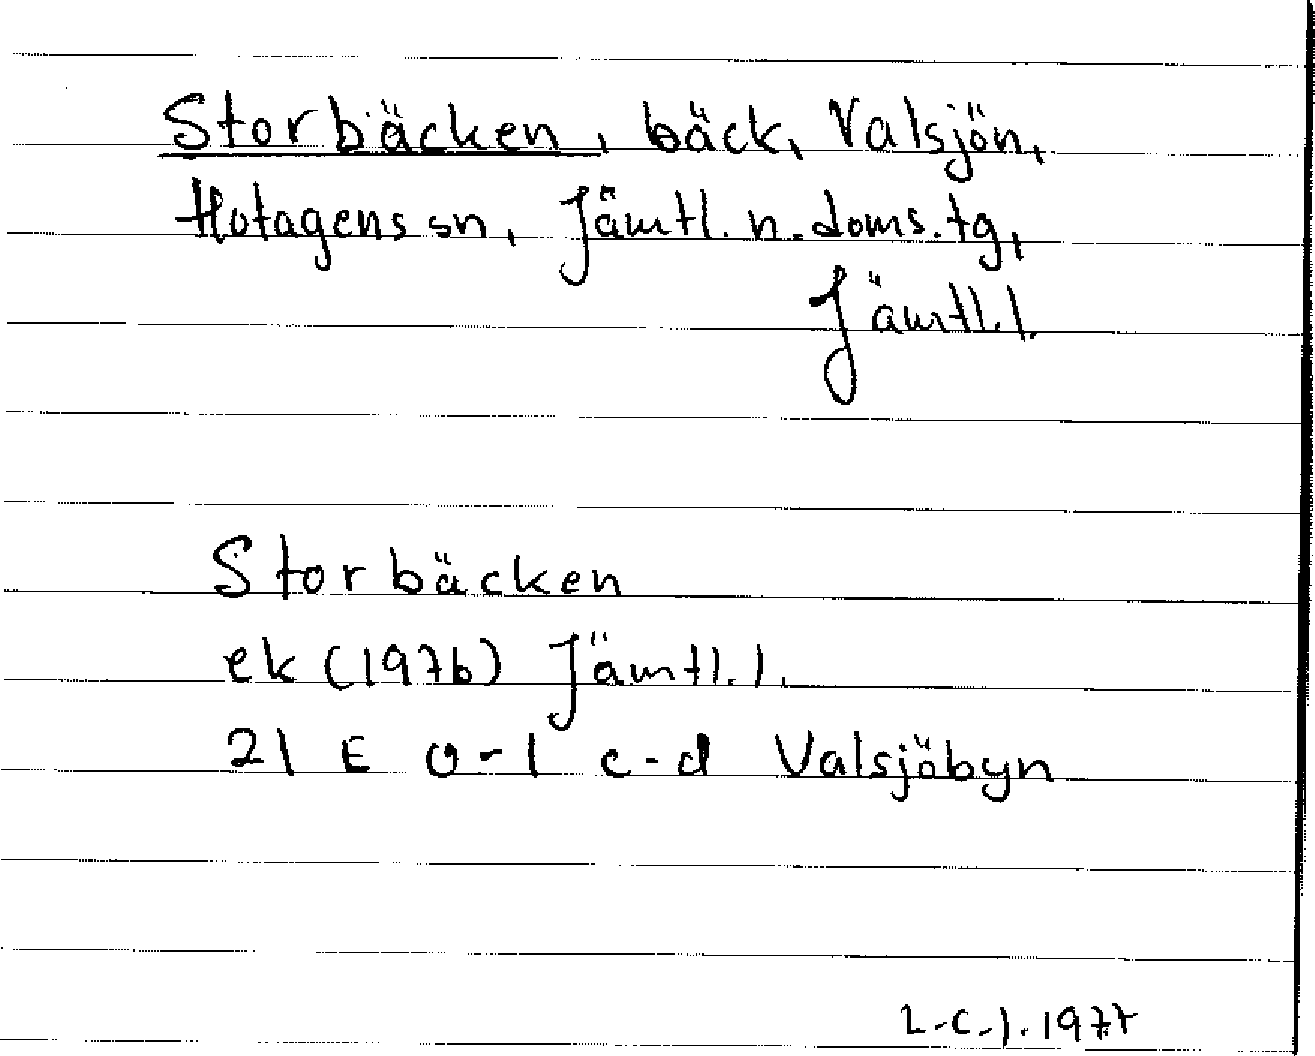 Storbäcken, bäck, Valsjön,
Hotagens sn, Jämtl. n. doms. tg,
Jämtl. l.
Storbäcken
ek (1976) Jämtl. l.
21 E 0-1 c-d Valsjöbyn
L-C.J. 1977